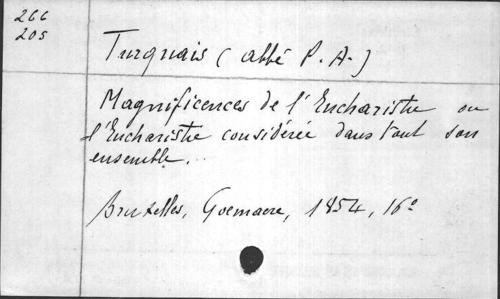 266
205
Turquais (abbé P. A.)
Magnificences de l'Eucharistie ou
l'Eucharistie considérée dans tout son
ensemble.
Bruxelles, Goemaere, 1854, 16°